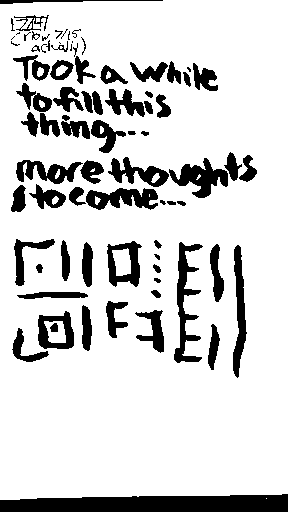 7/14
(now 7/15
actually)
Took a while
to fill this
thing...
more thoughts
to come...